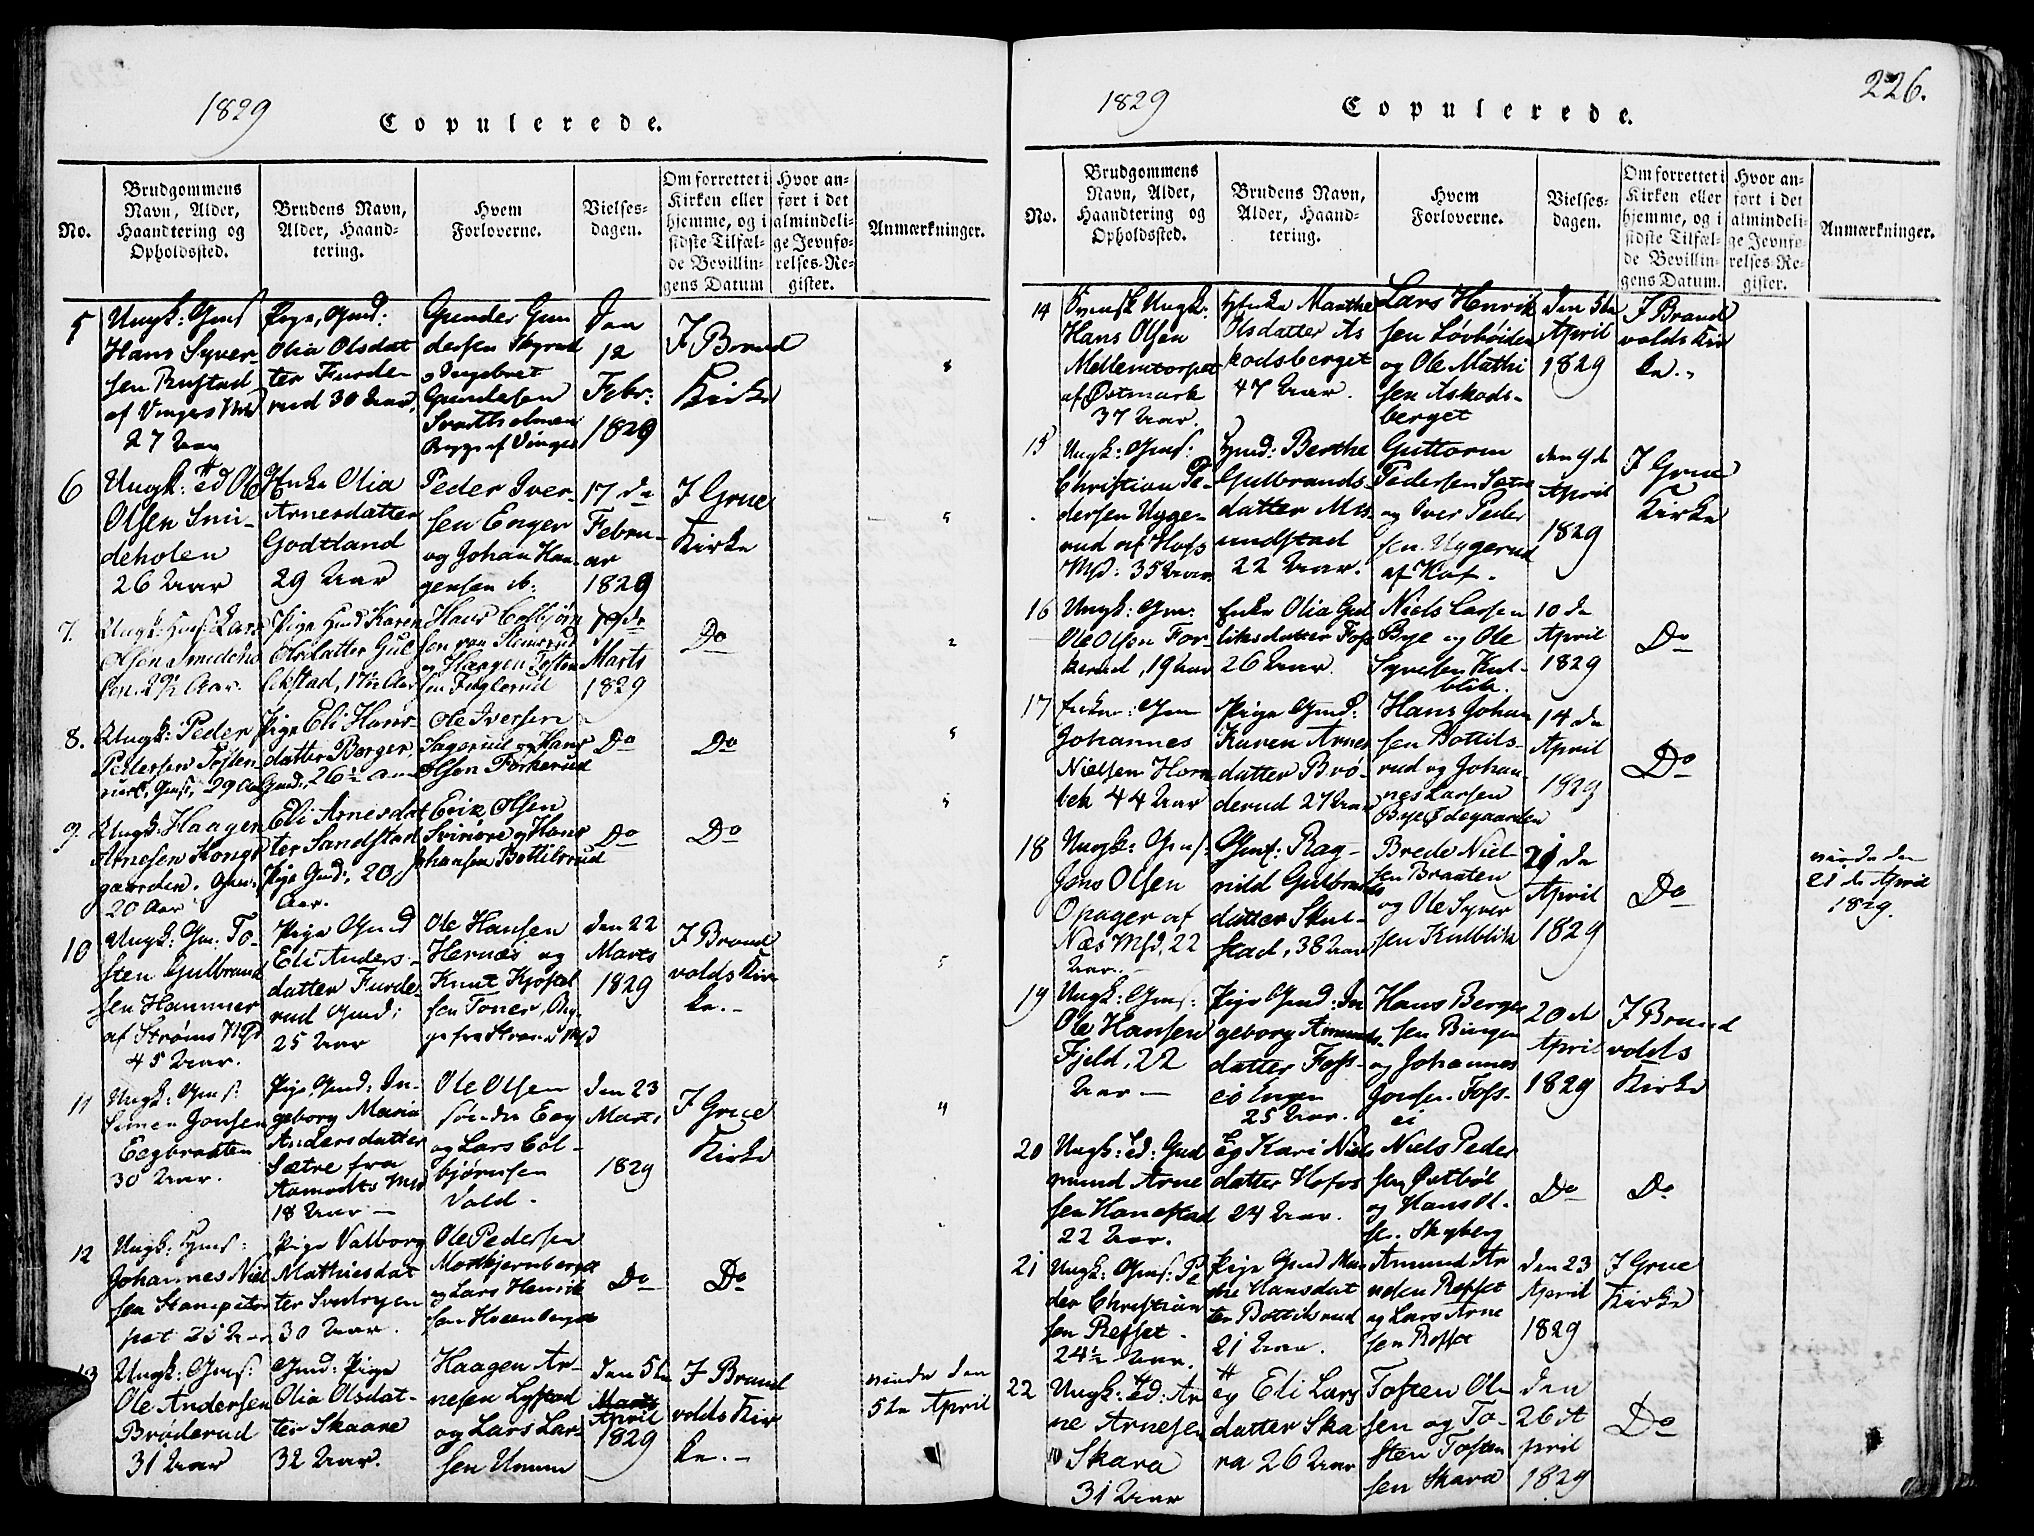 1829
Copulerede.
No.
Brudgommens Navn, Alder, Haandtering og Opholdssted.
Brudens Navn, Alder, Haandtering.
Hvem Forloverne.
Vielsesdagen.
Om forrettet i Kirken eller hjemme, og i sidste Tilfælde Bevillingens Datum
Hvor anført i det almindelige Jevnførelses-Register.
Anmærkninger.
5
Ungk: Gms
Hans Syver-
sen Rustad
af Vingers
27 Aar
Pige, Gmd:
Olia Olsdat
ter Furde-
rud 30 Aar
Gunder Gun
dersen
Gundersen
af Vinger
12
Febr:
1829
I Brand
Kirke
6
Ungk: Ole
Olsen Smi-
deholen
26 Aar
Enke Olia
Arnesdatter
Godtland
29 Aar
Peder Iver-
sen Enger
og Johan Haa
gensen
17 de
Febru-
ar
1829
I Grue
Kirke
7.
Ungk: Lars
Olsen Smideho
len
Pige Karen
Olsdatter Gul
likstad, 17½ Aar
Hans Colbjørn
sen
og Haagen Tosten
sen
Marts
1829
Do
8.
Ungk: Peder
Pedersen Tosten
rud, Gms, 29 Aar
Pige Eli Hans
datter Berger
Gmd:, 26
Ole Iversen
Sagerud og Hans
Olsen Forkerud
Do
Do
9.
Ungk: Haagen
Arnesen Kongs
gaarden.
20 Aar
Eli Arnesdat
ter Sandstad
Pige Gmd:, 20
Aar.
Erik Olsen
Svinøre og Hans
Johansen Bottilsrud
Do
Do
10
Ungk: Gm: To-
sten Gulbrand
sen Hammer
af Strøms
45 Aar.
Pige Gmd
Eli Anders-
datter Furde-
rud Gmd:
25 Aar
Ole Hansen
Hernæs og
Knut Kjøstel
sen Toner,
ge fra Strøm
den 22
Marts
1829
I Brand
volds Kir
ke.-
11
Ungk: Gms:
Simen Jonsen
Eegbraaten
30 Aar.
Pige, Gmd: In-
geborg Maria
Andersdatter
Sætre fra
Aamodts
18 Aar -
Ole Olsen
Søndre Eeg
og Lars Col-
bjørnsen
Vold.
den 23
Marts
1829
I Grue
Kirke
12
Ungk: Gms:
Johannes Niel
sen Kampetor
pet 25 Aar
Pige Valborg
Mathiesdat
ter Svetryen
30 Aar.
Ole Pedersen
og Lars Henrik
sen
Do
Do
13
Ungk: Gms:
Ole Andersen
Brøderud
31 Aar
Gmd: Pige
Olia Olsdat-
ter Skaare
32 Aar.
Haagen Ar-
nesen Lystad
og Lars Lar-
sen
den 5te
Marts
April
1829
I Brand
volds Kir
ke.-
viede den
5te April
226.
1829
Copulerede.
No.
Brudgommens Navn, Alder, Haandtering og Opholdssted.
Brudens Navn, Alder, Haandtering.
Hvem Forloverne.
Vielsesdagen.
Om forrettet i Kirken eller hjemme, og i sidste Tilfælde Bevillingens Datum.
Hvor anført i det almindelige Jevnførelses-Register.
Anmærkninger.
14
Svensk Ungk:
Hans Olsen
Mellemtorpet
af Østmark
37 Aar.
Enke Marthe
Olsdatter As
kodsberget
47 Aar.
Lars Henrik
sen Løvhøiden
og Ole Mathi
sen Askods-
berget
den 5te
April
1829
I Brand
volds Kir
ke.-
15
Ungk: Gms:
Christian Pe-
dersen Ugge-
rud af Hofs
Msd: 35 Aar
Gmd: Berthe
Gulbrands-
datter
undstad
22 Aar.
Guttorm
Pedersen Sætre
og Iver Peder
sen Uggerud
af Hof.
den 9de
April
1829
I Grue
Kirke
16
Ungk: Gm:
Ole Olsen For-
kerud, 19 Aar
Enke Olia Gul
liksdatter Foss
26 Aar.
Niels Larsen
Bye og Ole
Syversen Kul-
blik.
10 de
April
1829
Do
17
Enkem: Gm
Johannes
Nielsen Horn
bek 44 Aar
Pige Gmd:
Karen Arnes
datter Brø-
derud 27 Aar
Hans Johan
sen Bottils-
rud og Johan-
nes Larsen
Bye Ødegaarden
14 de
April
1829
Do
18
Ungk: Gms:
Jens Olsen
Opager af
Næs Msd, 22
Aar.
Gmf: Rag-
nild Gulbrands
datter Skul-
stad, 38 Aar
Brede Niel-
sen Braaten
og Ole Syver
sen Kulblik
21 de
April
1829
Do
viede den
21 de April
1829.
19
Ungk: Gms:
Ole Hansen
Fjeld, 22
Aar -
Pige Gmd: In
geborg Amunds
datter Foss-
ei Engen
25 Aar.
Hans Berger
sen Bingen
og Johannes
Jonsen Foss-
ei
20 de
April
1829
I Brand
volds
Kirke
20
Ungk: Ed: Gud
mund Arne
sen Hanestad
22 Aar.
Eg Kari Niels
datter Hofos
24 Aar.
Niels Peder
sen Østbøl
og Hans Ol-
sen Skyberg
Do
Do
21
Ungk: Gms: Pe
der Christian
sen Refset.
24½ Aar.
Pige Gmd Mar
the Hansdat
ter Bottilsrud
21 Aar.
Amund Ar
nesen Refset
og Lars Arne
sen Refset
den 23
April
1829
I Grue
Kirke
22
Ungk: Ed: Ar
ne Arnesen
Skara
31 Aar
Eg Eli Lars
datter Ska
ra 26 Aar
Tosten Ole
sen og To-
sten Tosten
sen Skara
den
26 A
pril
1829
Do